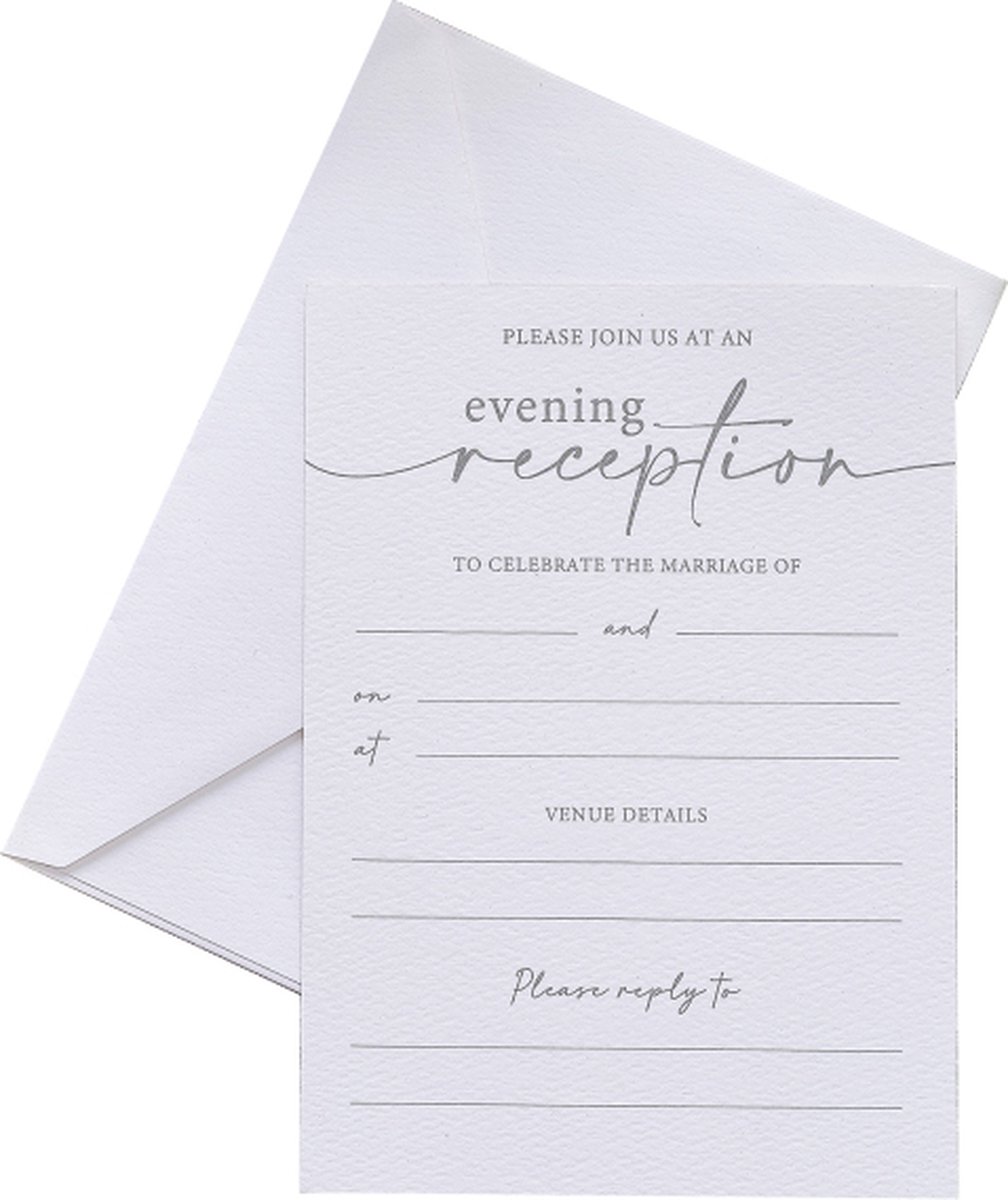 PLEASE JOIN US AT AN
evening
reception
TO CELEBRATE THE MARRIAGE OF
and
on
at
VENUE DETAILS
Please reply to